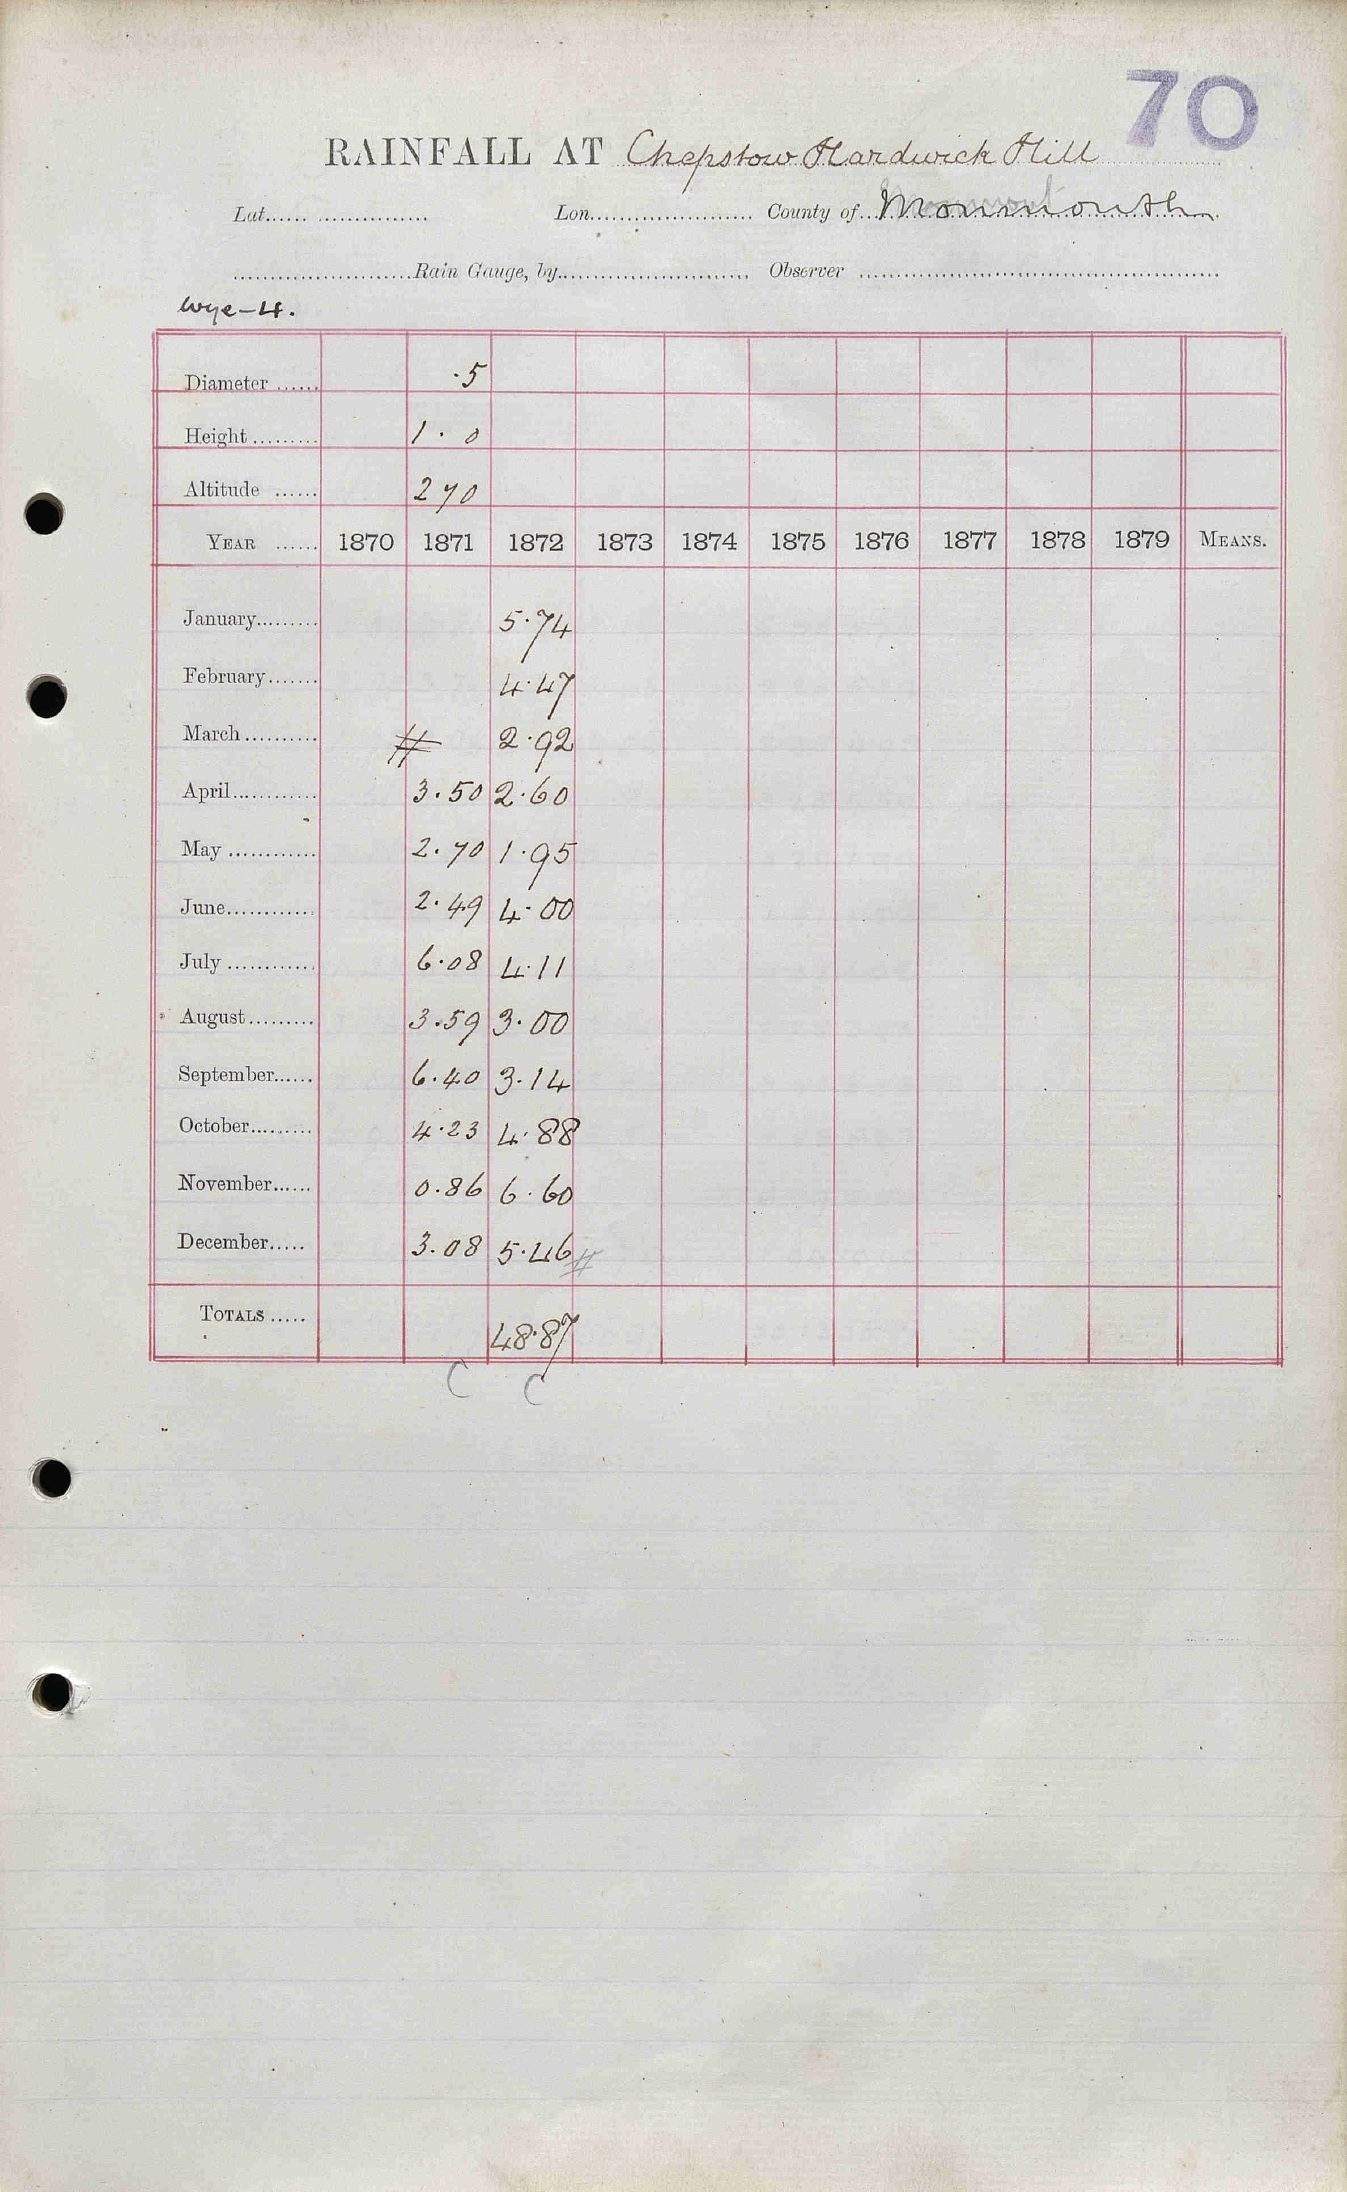 70
RAINFALL AT Chepstow Hardwick Hill
Lat. Lon. County of Monmouth
Rain Gauge, by Observer
Wye-4.
Diameter ...... ·5
Height ......... 1 · 0
Altitude ...... 270
YEAR ...... 1870 1871 1872 1873 1874 1875 1876 1877 1878 1879 MEANS.
January......... 5·74
February....... 4·47
March .......... # 2·92
April............ 3·50 2·60
May ............ 2·70 1·95
June............ 2·49 4·00
July ............ 6·08 4·11
August......... 3·59 3·00
September...... 6·40 3·14
October......... 4·23 4·88
November...... 0·86 6·60
December..... 3·08 5·46 #
TOTALS ..... 48·87
C C